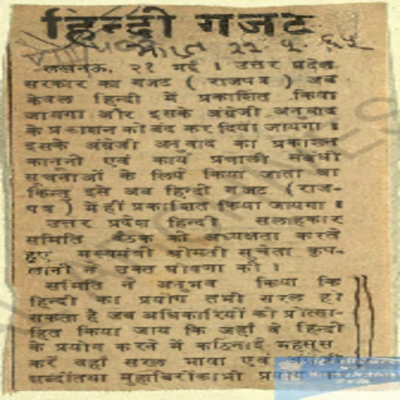 हिन्दी गजट
२२.५.६५
लखनऊ, २१ मई । उत्तर प्रदेश
सरकार का गजट ( राजपत्र ) अब
केवल हिन्दी में प्रकाशित किया
जायगा और इसके अंग्रेजी अनुवाद
के प्रकाशन को बंद कर दिया जायगा ।
इसके अंग्रेजी अनुवाद का प्रकाशन
कानूनी एवं कार्य प्रणाली संबंधी
सूचनाओं के लिये किया जाता था
किन्तु इसे अब हिन्दी गजट (राज-
पत्र ) में ही प्रकाशित किया जायगा ।
उत्तर प्रदेश हिन्दी सलाहकार
समिति बैठक की अध्यक्षता करते
हुए मुख्यमंत्री श्रीमती सुचेता कृप-
लानी ने उक्त घोषणा की ।
समिति ने अनुभव किया कि
हिन्दी का प्रयोग तभी सरल हो
सकता है जब अधिकारियों को प्रोत्सा-
हित किया जाय कि जहाँ वे हिन्दी
के प्रयोग करने में कठिनाई महसूस
करें वहाँ सरल भाषा एवं
शब्दों तथा मुहाविरों का भी प्रयोग